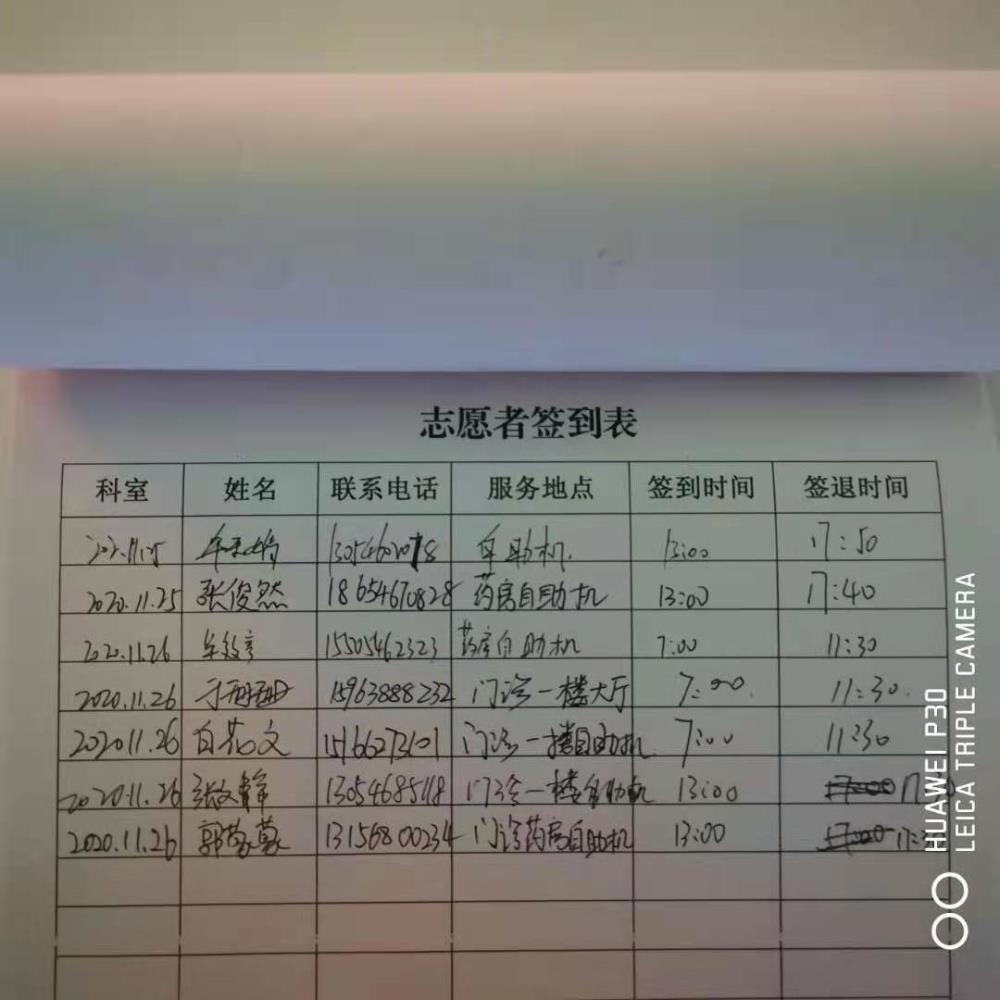 志愿者签到表
科室 姓名 联系电话 服务地点 签到时间 签退时间
自助机 13:00 17:50
2020.11.25 张俊然 18654670828 药房自助机 13:00 17:40
2020.11.26 15505462323 药房自助机 7:00 11:30
2020.11.26 15963888232 门诊一楼大厅 7:00 11:30
2020.11.26 白 文 15166273101 门诊一楼自助机 7:00 11:30
2020.11.26 张文静 13054685118 门诊一楼自助机 13:00
2020.11.26 郭 13156800234 门诊药房自助机 13:00
HUAWEI P30
LEICA TRIPLE CAMERA